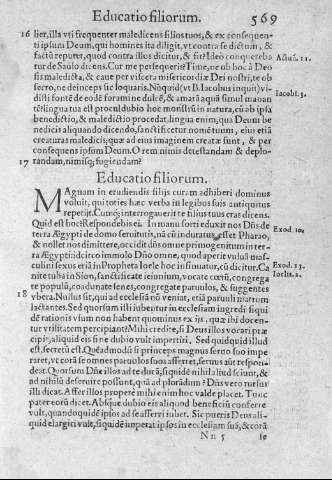 Educatio filiorum. 569
16 lier, illa vti frequenter maledicens filios tuos, & ex consequen-
ti ipsum Deum, qui homines ita diligit, vt contra se dictum, &
factũ reputet, quod contra illos dicitur, & fit? Ideo conquereba
tur de Saulo dicens. Cur me persequeris? Time, ne ob hoc à Deo Actuũ. 11.
sis maledicta, & caue per viscera misericordiæ Dei nostri, te ob
secro, ne deinceps sic loquaris. Nũquid (vt B. Iacobus inquit) vi-
disti fonté de eodé foramine dulcé, & amarã aquã simul manan Iacobi. 3.
té? lingua tua est proculdubio hoc monstrũ in natura, cũ ab ipsa
benedictio, & maledictio procedat, lingua enim, qua Deum be
nedicis aliquando dicendo, sanctificetur nomé tuum, eius etiã
creaturas maledicis; quæ ad eius imaginem creatæ sunt, & per
consequens ipsum Deum. O rem nimis detestandam & deplo-
17 randam, nimisq; fugiendam!
Educatio filiorum.
MAgnam in erudiendis filijs curam adhiberi dominus
voluit, qui toties hæc verba in legibus suis antiquitus
repetijt. Cumq; interrogauerit te filius tuus cras dicens.
Quid est hoc? Respondebis ei. In manu forti eduxit nos Dñs de
terra Ægypti de domo seruitutis, nã cũ induratus esset Pharao, Exod. 10.
& nollet nos dimittere, occidit dñs omne primogenitum in ter-
ra Ægypti: idcirco immolo Dño omne, quod aperit vuluã mas-
culini sexus etiã in Propheta Ioele hoc insinuatur, cũ dicitur. Ca Exod. 13.
nite tuba in Sion, sanctificate ieiunium, vocate cœtũ, congrega Ioelis. 2.
te populũ, coadunate senes, congregate paruulos, & sugentes
18 vbera. Nullus sit, qui ad ecclesiã nõ veniat, etiã paruuli matrum
lactantes. Sed quorsum isti iubentur in ecclesiam ingredi si qui
dé rationis vsum non habent quominus ex ijs, quæ ibi docen-
tur vtilitatem percipiant? Mihi credite, si Deus illos vocari præ
cipit, aliquid eis sine dubio vult impertiri. Sed quidquid illud
est, secretũ est. Quéadmodũ si princeps magnus seruo suo impe
raret, vt corã se omnes patruelos suos afferret, seruus aũt respon-
deat. Quorsum Dñe illos ad te ducã, siquidé nihil aliud sciunt, &
ad nihilũ deseruire possunt, quã ad plorãdum? Dñs vero rursus
illi dicat. Affer illos propere mihi enim hoc valde placet. Tunc
pater eorũ dicet. Absque dubio eis aliquod beneficiũ conferre
vult, quandoquidé ipsos ad se afferri iubet. Sic pueris Deus ali-
quid elargiri vult, siquidé imperat ipsos in ecclesiam suã, & corã
Nn 5 se